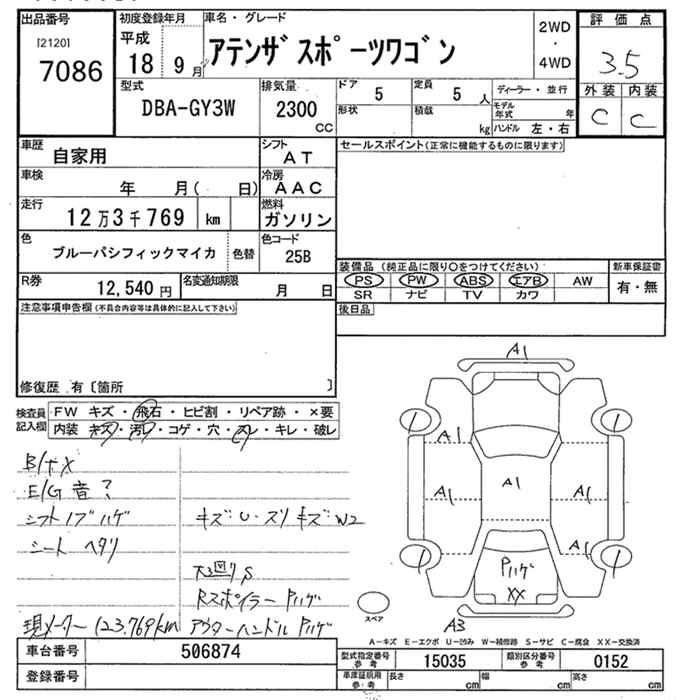 出品番号
[2120]
7086
初度登録年月
平成
18 9 月
車名・グレード
アテンザスポーツワゴン
2WD
・
4WD
評価点
3.5
外装 内装
C C
型式
DBA-GY3W
排気量
2300
CC
ドア 5
形状
定員 5 人
積載 kg
ディーラー・並行
モデル年式 年
ハンドル 左・右
車歴
自家用
シフト
AT
セールスポイント(正常に機能するものに限ります)
車検
年 月( 日)
冷房
AAC
走行
12万3千769 km
燃料
ガソリン
色
ブルーパシフィックマイカ
色替
色コード
25B
装備品(純正品に限り○をつけてください)
新車保証書
PS PW ABS エアB AW
SR ナビ TV カワ
有・無
R券
12,540 円
名変通知期限
月 日
後日品
注意事項申告欄(不具合内容等は具体的に記入して下さい)
修復歴 有〔箇所 〕
検査員記入欄
FW キズ・飛石・ヒビ割・リペア跡・×要
内装 キズ・汚レ・コゲ・穴・スレ・キレ・破レ
E/G 音?
シフトノブハゲ
シート ヘタリ
キズ・U・スリキズ・W2
Rスポイラー Pハゲ
現メーター 123.769km アウターハンドル Pハゲ
A1
A1
A1
A1
A1
A1
Pハゲ
XX
A3
スペア
A-キズ E-エクボ U-凹み W-補修跡 S-サビ C-腐食 XX-交換済
車台番号
506874
型式指定番号
参考
15035
類別区分番号
参考
0152
登録番号
車庫証明用
参考
長さ cm
幅 cm
高さ cm